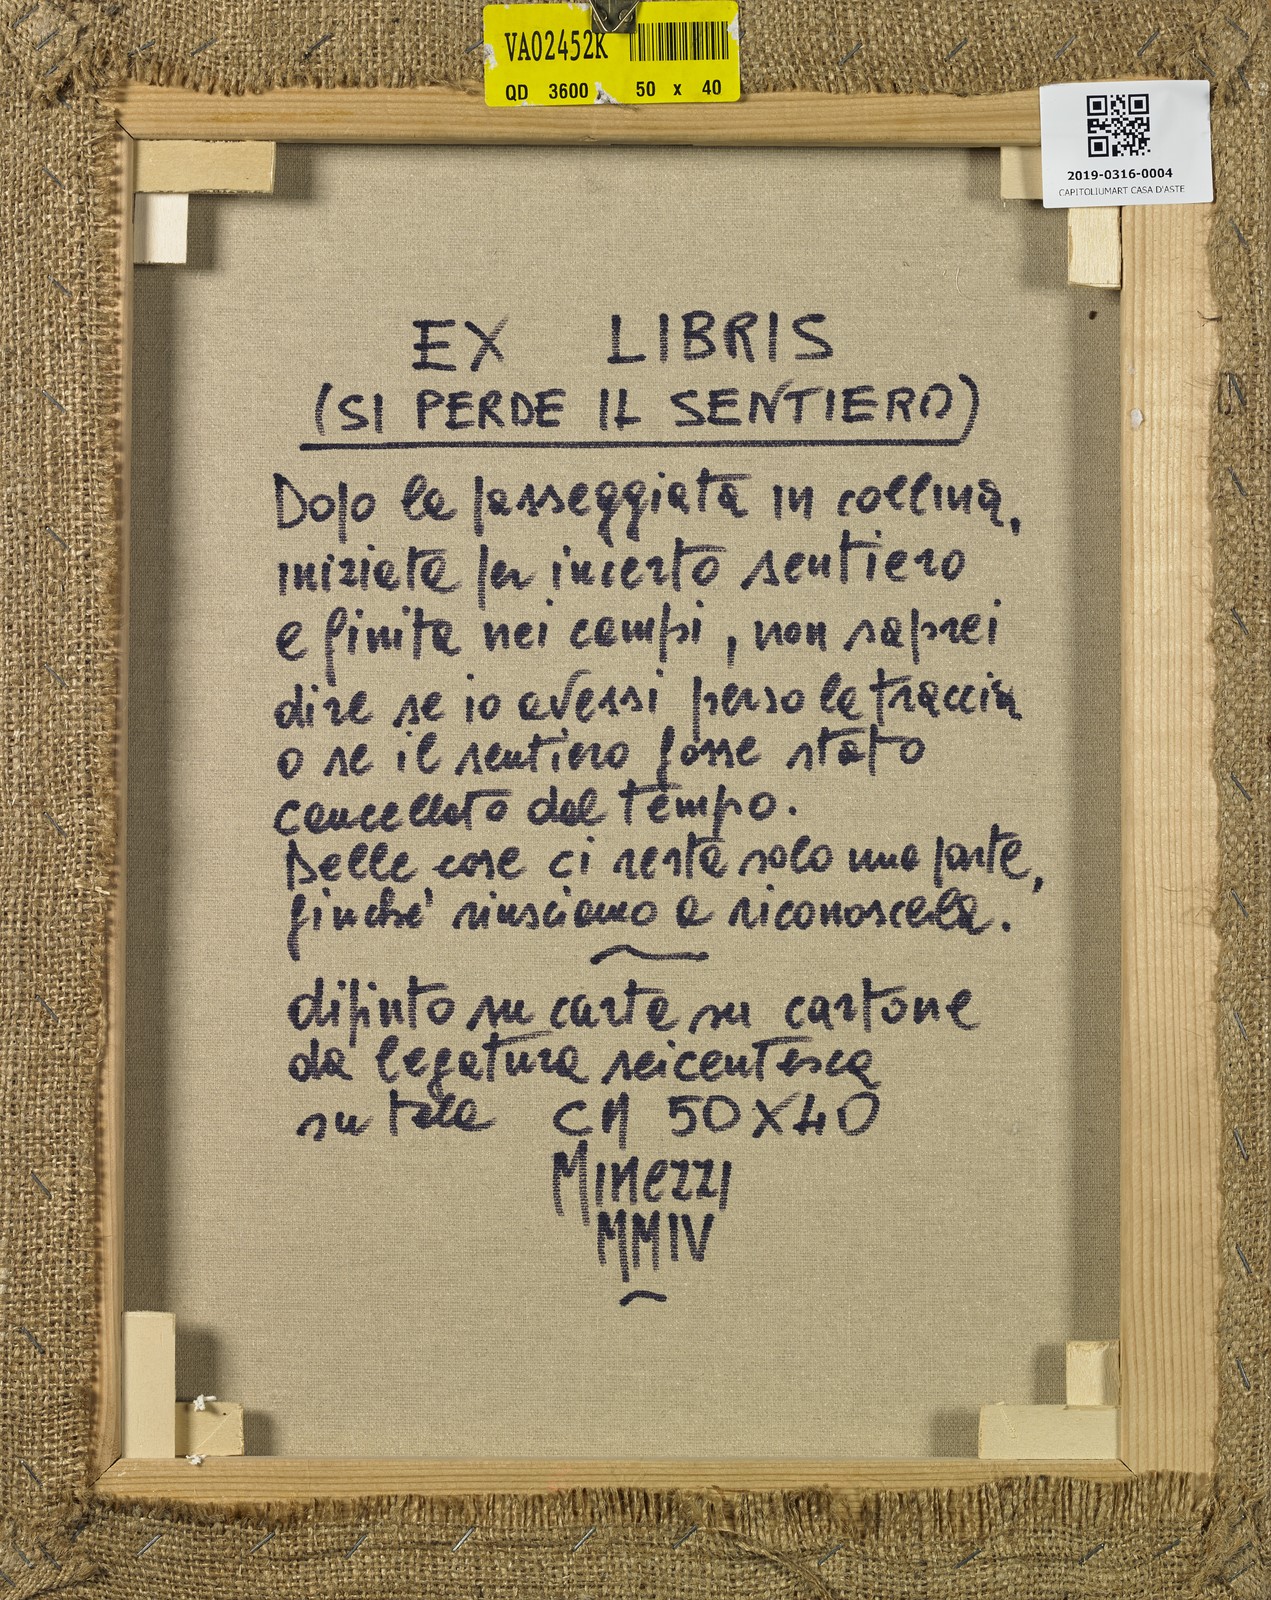 VA02452K
QD 3600 50 x 40
2019-0316-0004
CAPITOLIUMART CASA D'ASTE
EX LIBRIS
(SI PERDE IL SENTIERO)
Dopo la passeggiata in collina,
iniziata per incerto sentiero
e finita nei campi, non saprei
dire se io avessi perso la traccia
o se il sentiero fosse stato
cancellato dal tempo.
Delle cose ci resta solo una parte,
finché riusciamo a riconoscerla.
dipinto su carta su cartone
da legatura seicentesca
su tela CM 50X40
Minezzi
MMIV